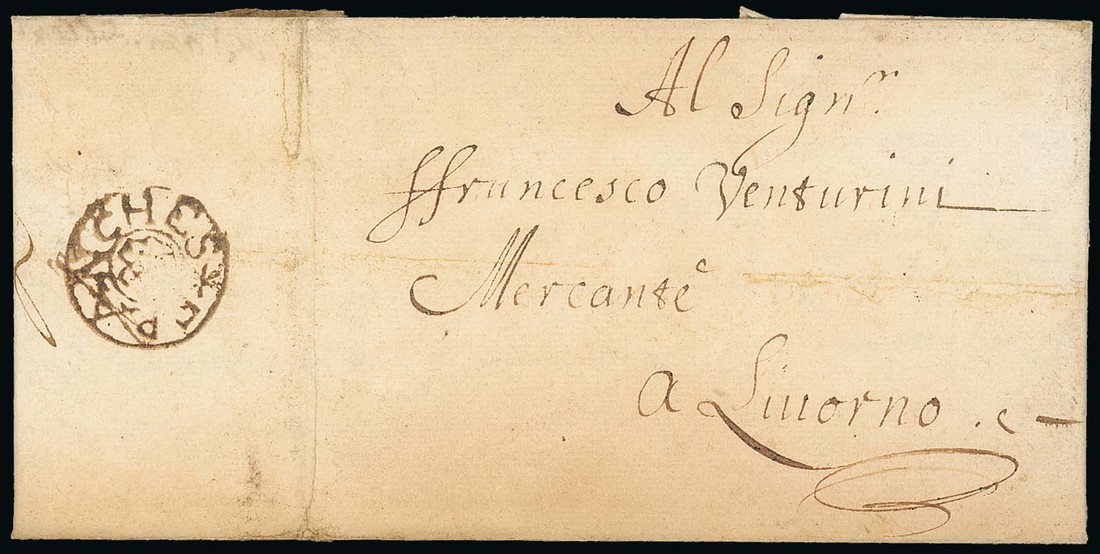 Al Sign.r
ffrancesco Venturini
Mercante
a Liuorno
CHESTER